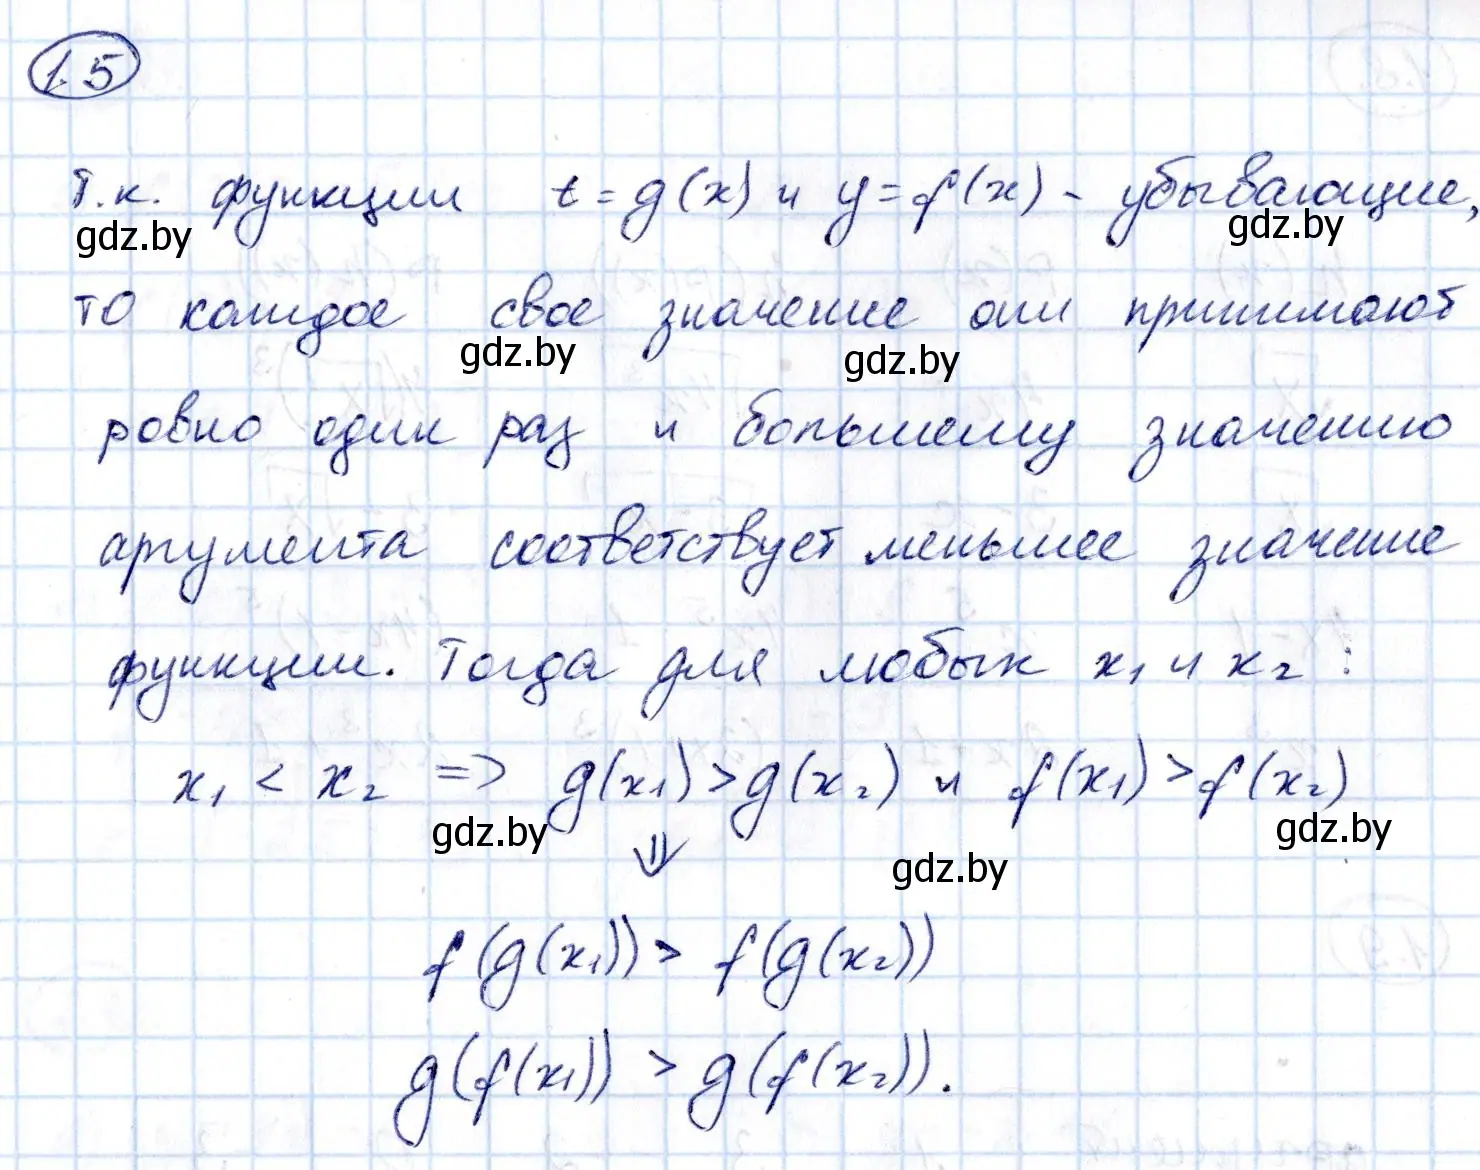 1.5
Т.к. функции t = g(x) и y = f(x) - убывающие,
gdz.by gdz.by
то каждое свое значение они принимают
gdz.by gdz.by
ровно один раз и большему значению
аргумента соответствует меньшее значение
функции. Тогда для любых x₁ и x₂:
x₁ < x₂ => g(x₁) > g(x₂) и f(x₁) > f(x₂)
gdz.by ⇓ gdz.by gdz.by
f(g(x₁)) > f(g(x₂))
g(f(x₁)) > g(f(x₂)).